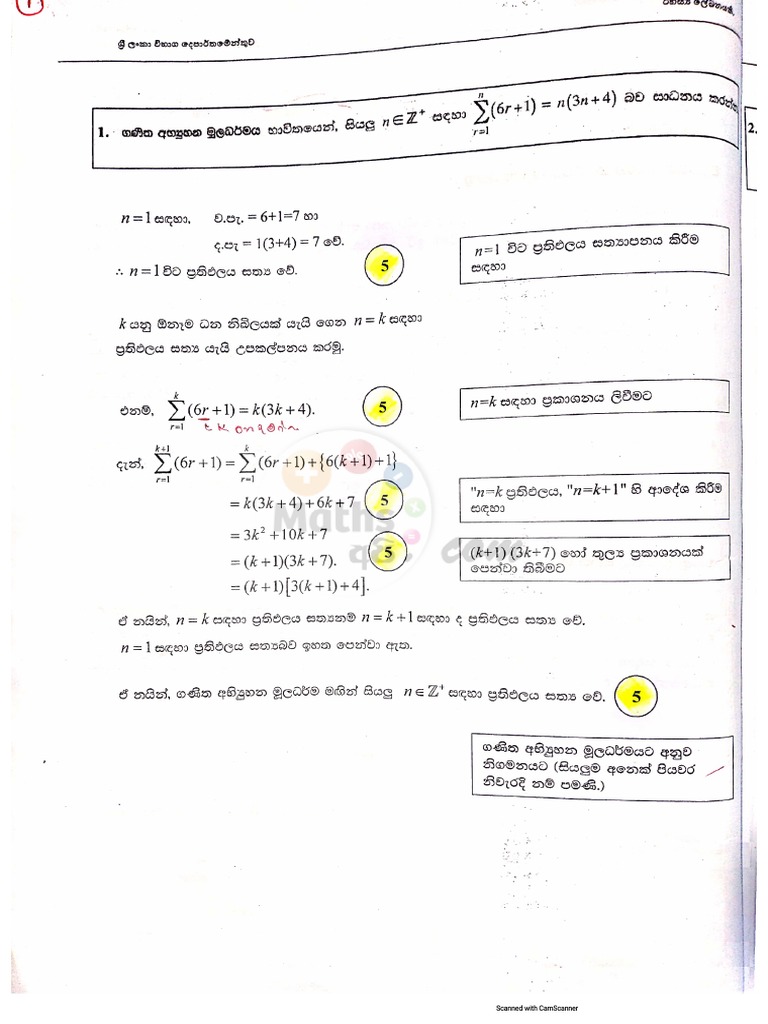 1
රහස්‍ය ලේඛනයකි.
ශ්‍රී ලංකා විභාග දෙපාර්තමේන්තුව
1. ගණිත අභ්‍යුහන මූලධර්මය භාවිතයෙන්, සියලු n∈ℤ⁺ සඳහා ∑_{r=1}^{n}(6r+1) = n(3n+4) බව සාධනය කරන්න.
2.
n=1 සඳහා, ව.පැ. = 6+1=7 හා
ද.පැ = 1(3+4) = 7 වේ.
∴ n=1 විට ප්‍රතිඵලය සත්‍ය වේ. 5
n=1 විට ප්‍රතිඵලය සත්‍යාපනය කිරීම
සඳහා
k යනු ඕනෑම ධන නිඛිලයක් යැයි ගෙන n=k සඳහා
ප්‍රතිඵලය සත්‍ය යැයි උපකල්පනය කරමු.
එනම්, ∑_{r=1}^{k}(6r+1) = k(3k+4). 5
n=k සඳහා ප්‍රකාශනය ලිවීමට
දැන්, ∑_{r=1}^{k+1}(6r+1) = ∑_{r=1}^{k}(6r+1)+{6(k+1)+1}
= k(3k+4)+6k+7 5
"n=k ප්‍රතිඵලය, "n=k+1" හි ආදේශ කිරීම
සඳහා
= 3k²+10k+7
= (k+1)(3k+7). 5
(k+1) (3k+7) හෝ තුල්‍ය ප්‍රකාශනයක්
පෙන්වා තිබීමට
= (k+1)[3(k+1)+4].
Maths අපි .com
ඒ නයින්, n=k සඳහා ප්‍රතිඵලය සත්‍යනම් n=k+1 සඳහා ද ප්‍රතිඵලය සත්‍ය වේ.
n=1 සඳහා ප්‍රතිඵලය සත්‍යබව ඉහත පෙන්වා ඇත.
ඒ නයින්, ගණිත අභ්‍යුහන මූලධර්ම මඟින් සියලු n∈ℤ⁺ සඳහා ප්‍රතිඵලය සත්‍ය වේ. 5
ගණිත අභ්‍යුහන මූලධර්මයට අනුව
නිගමනයට (සියලුම අනෙක් පියවර
නිවැරදි නම් පමණි.)
Scanned with CamScanner